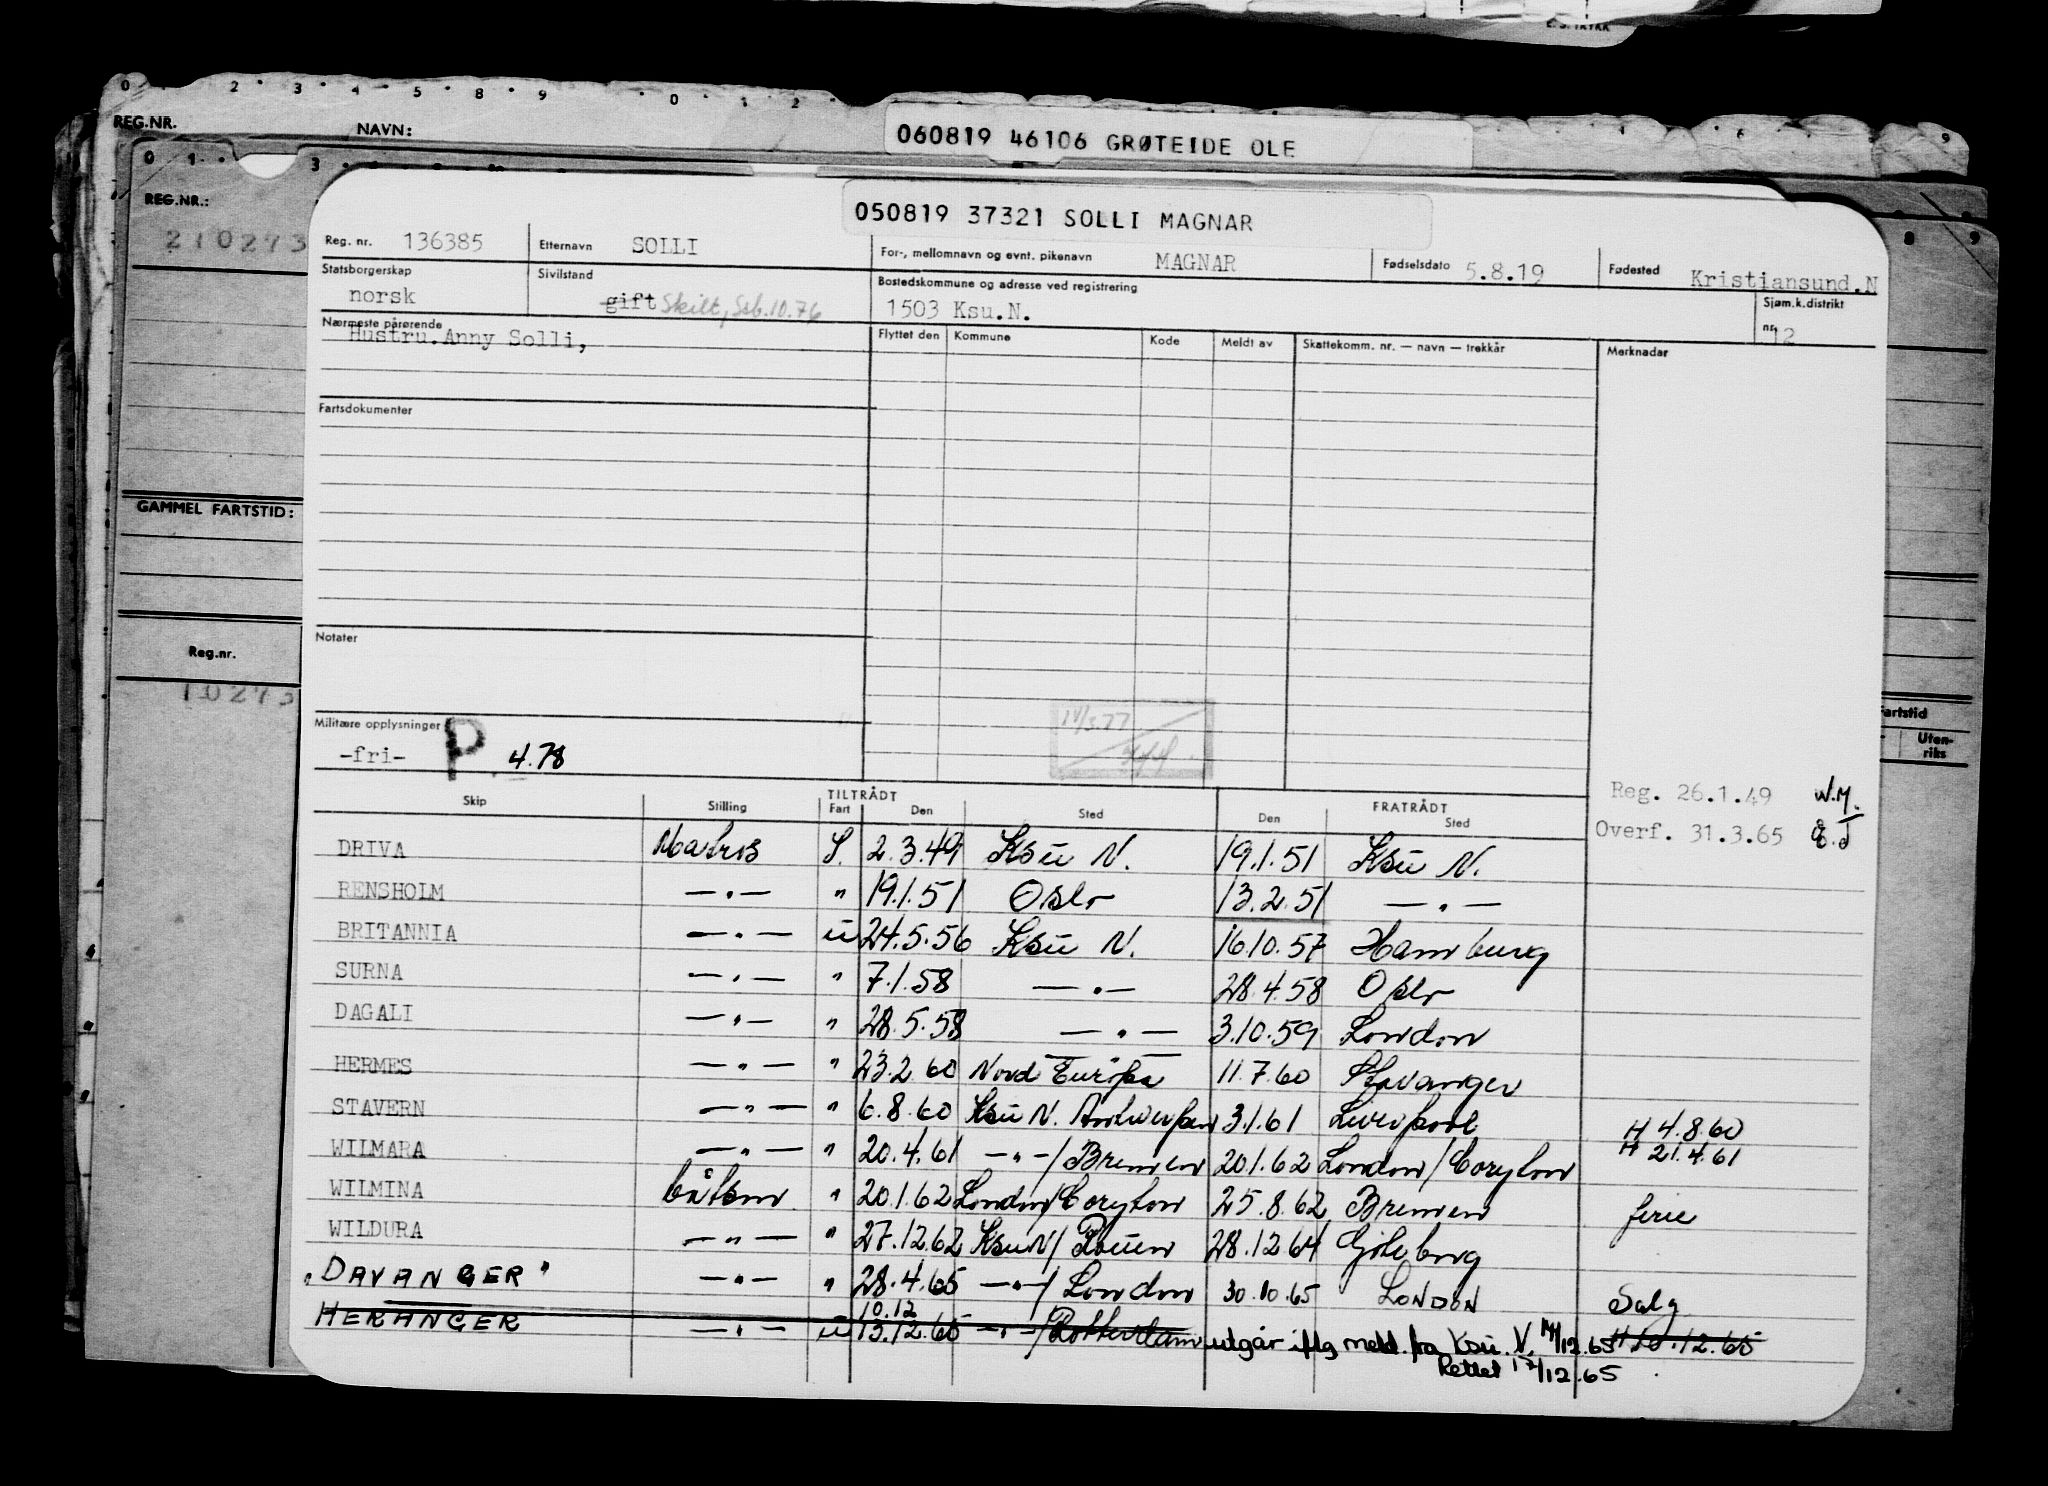 E. S. TRYKK
0 2 3 4 5 8 9 0 1 2 1 6 9
REG.NR. NAVN: 060819 46106 GRØTEIDE OLE
0 1 3 8 9
REG.NR.:
210273
GAMMEL FARTSTID:
Reg.nr.
10273
Fartstid
Uten-
riks
050819 37321 SOLLI MAGNAR
Reg. nr. 136385 Etternavn SOLLI For-, mellomnavn og evnt. pikenavn MAGNAR Fødselsdato 5.8.19 Fødested Kristiansund.N
Statsborgerskap norsk Sivilstand gift Skilt, Ssb.10.76 Bostedskommune og adresse ved registrering 1503 Ksu.N. Sjøm.k.distrikt nr. 12
Nærmeste pårørende Hustru.Anny Solli, Flyttet den Kommune Kode Meldt av Skattekomm. nr. — navn — trekkår Merknadar
Fartsdokumenter
Notater
Militære opplysninger
-fri- P. 4.78
14/3.77
Reg. 26.1.49 W.M.
Overf. 31.3.65
Skip Stilling TILTRÅDT Fart Den Sted FRATRÅDT Den Sted
DRIVA Matros S. 2.3.49 Ksu N. 19.1.51 Ksu N.
RENSHOLM —"— " 19.1.51 Oslo 13.2.51 —"—
BRITANNIA —"— u 24.5.56 Ksu N. 16.10.57 Hamburg
SURNA —"— " 7.1.58 —"— 28.4.58 Oslo
DAGALI —"— " 28.5.58 —"— 3.10.59 London
HERMES —"— " 23.2.60 Nord Europa 11.7.60 Stavanger
STAVERN —"— " 6.8.60 Ksu N. Antwerpen 3.1.61 Liverpool H 4.8.60
WILMARA —"— " 20.4.61 —"—/Bremen 20.1.62 London/Coryton H 21.4.61
WILMINA båtsm " 20.1.62 London/Coryton 25.8.62 Bremen ferie
WILDURA —"— " 27.12.62 Ksu N/ Rouen 28.12.64 Göteborg
"DAVANGER" —"— " 28.4.65 —"—/London 30.10.65 LONDON Salg
HERANGER —"— u 10.12 13.12.65 —"—/Rotterdam utgår iflg meld. fra Ksu. N. 14/12.65 H 10.12.65
Rettet 17/12.65